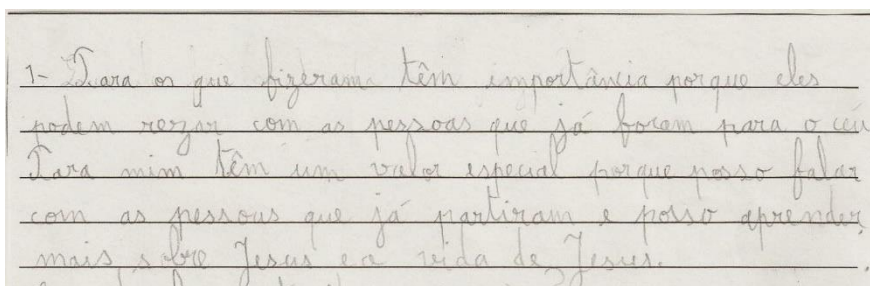 1- Para os que fizerama têm importância porque eles
podem rezar com as pessoas que já foram para o céu
Para mim têm um valor especial porque posso falar
com as pessoas que já partiram e posso aprender
mais sobre Jesus e a vida de Jesus.